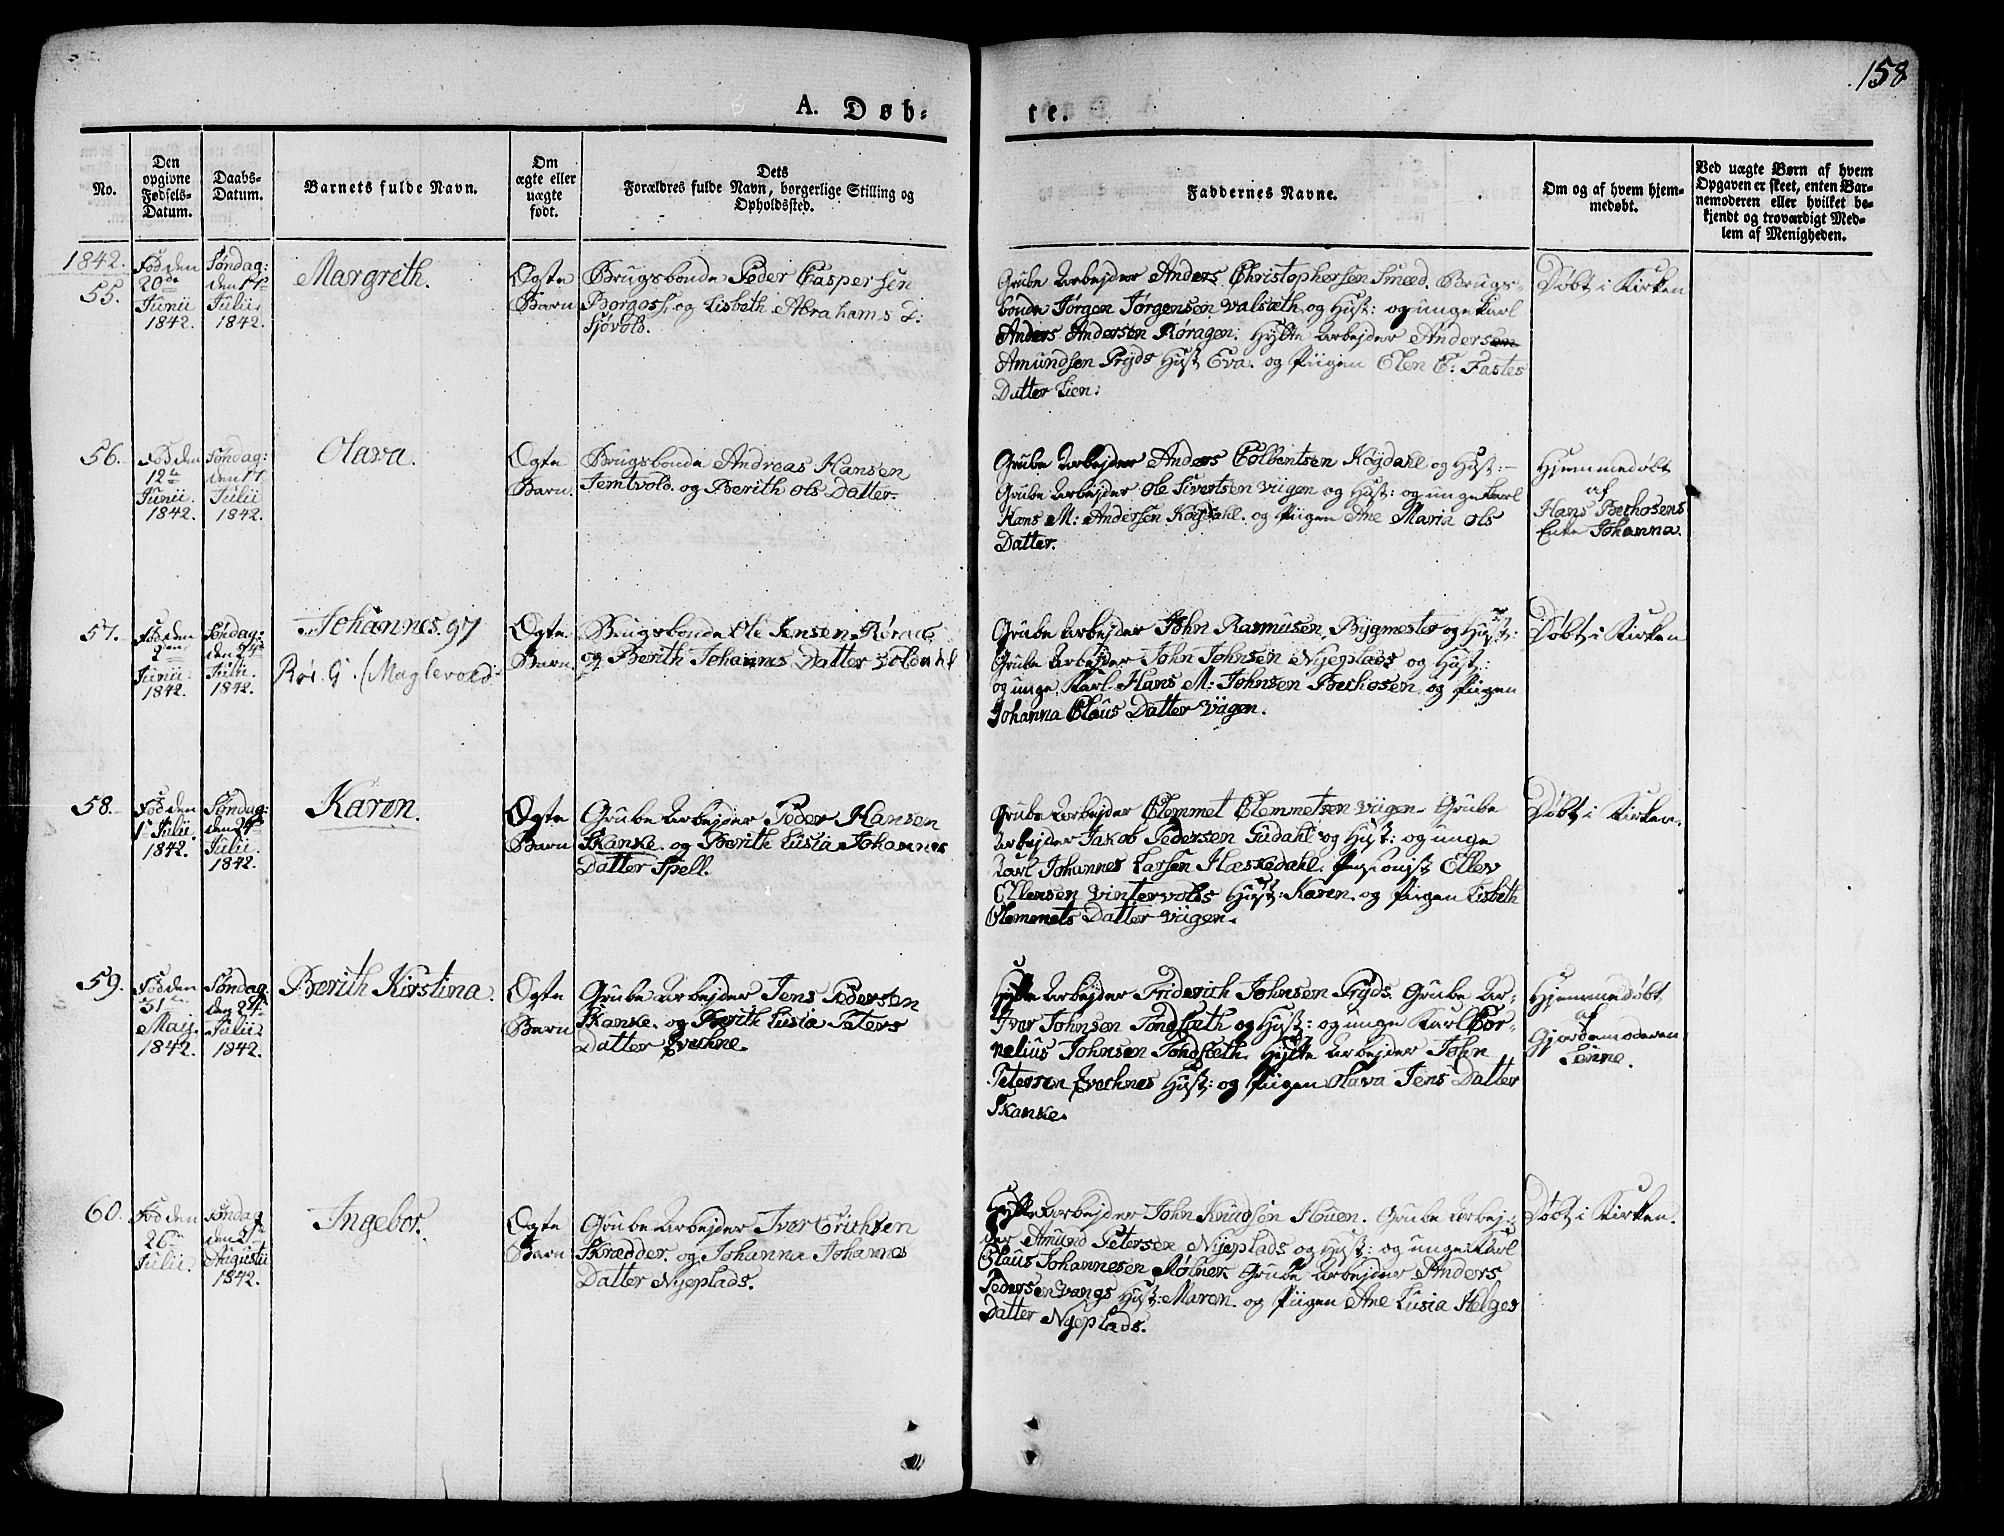 158
A. Døb-
te.
No.
Den opgivne Fødsels-Datum.
Daabs-Datum.
Barnets fulde Navn.
Om ægte eller uægte født.
Dets Forældres fulde Navn, borgerlige Stilling og Opholdssted.
Faddernes Navne.
Om og af hvem hjem-medøbt.
Ved uægte Børn af hvem Opgaven er skeet, enten Bar-nemoderen eller hvilket be-kjendt og troværdigt Med-lem af Menigheden.
1842.
55.
Fød den
20de
Junii
1842.
Søndag:
den 17de
Julii
1842.
Margreth.
Ægte
Barn
Brugsbonde Peder Caspersen
Borgos, og Lisbeth Abrahams D.
Sjøvold.
Grube Arbejder Anders Christophersen Smed. Brugs-
bonde Jørgen Jørgensen Valsæth og Hust: og unge Karl
Anders Andersen Røragen. Hytte Arbejder Andersen
Amundsen Pryds Hust Eva. og Piigen Elen E: Fastes
Datter Lien:
Døbt i Kirken
56.
Fød den
12te
Junii
1842.
Søndag:
den 17
Julii
1842.
Olava.
Ægte
Barn.
Brugsbonde Andreas Hansen
Jemtvold. og Berith Ols Datter.
Grube Arbejder Anders Colbentsen Køgdahl og Hust:
Grube Arbejder Ole Sivertsen Viigen og Hust: og unge Karl
Hans M: Andersen Køgdahl. og Piigen Ane Maria Ols
Datter.
Hjemmedøbt
af
Hans Berhosens
Enke Johanna.
57.
Fød den
2den
Junii
1842.
Søndag:
den 24de
Julii
1842.
Johannes. 97
Rør. G. (Maglevold
Ægte
Barn.
Brugsbonde Ole Jensen Røraas
og Berith Johannes Datter Solendal
Grube Arbejder John Rasmusen, Bygmester og Hust:
Grube Arbejder John Johnsen Nyeplads og Hust:
og unge Karl Hans M: Johnsen Berhosen og Piigen
Johanna Claus Datter Viigen.
Døbt i Kirken
58.
Fød den
1e Julii.
1842.
Søndag:
den 24de
Julii
1842.
Karen.
Ægte
Barn
Grube Arbejder Peder Hansen
Skanke. og Berith Lusia Johannes
Datter Spell.
Grube Arbejder Clemmet Clemmetsen Viigen. Grube
Arbejder Jakob Pedersen Gudahl og Hust: og unge
Karl Johannes Larsen Hæskedahl. Pensionist Ellev
Ellensen Vintervolds Hust: Karen. og Piigen Lisbeth
Clemmets Datter Viigen.
Døbt i Kirken.
59.
Fød den
31te
Maij.
1842.
Søndag
den 24de
Julii
1842.
Berith Kirstina.
Ægte
Barn
Grube Arbejder Jens Pedersen
Skanke. og Berith Lusia Peters
Datter Evehne.
Hytte Arbejder Friderich Johnsen Pryds. Grube Ar-
Iver Johnsen Tondsæth og Hust: og unge Karl Cor-
nelius Johnsen Tondsæth. Hytte Arbejder John
Petersen Evehnes Hust: og Piigen Olava Jens Datter
Skanke.
Hjemmedøbt
af
Gjordemoderen
Lønne.
60.
Fød den
26de
Julii.
Søndag
den
Augustii
1842.
Ingebor.
Ægte
Barn
Grube Arbejder Iver Erichsen
Skrædder. og Johanna Johannes
Datter Nyeplads.
Hytte Arbejder John Knudsen Houen. Grube Arbej-
der Amund Petersen Nyeplads og Hust: og unge Karl
Claus Johannesen Mølner Grube Arbejder Anders
Pedersen Vangs Hust: Maren. og Piigen Ane Lusia Helges
Datter Nyeplads.
Døbt i Kirken.